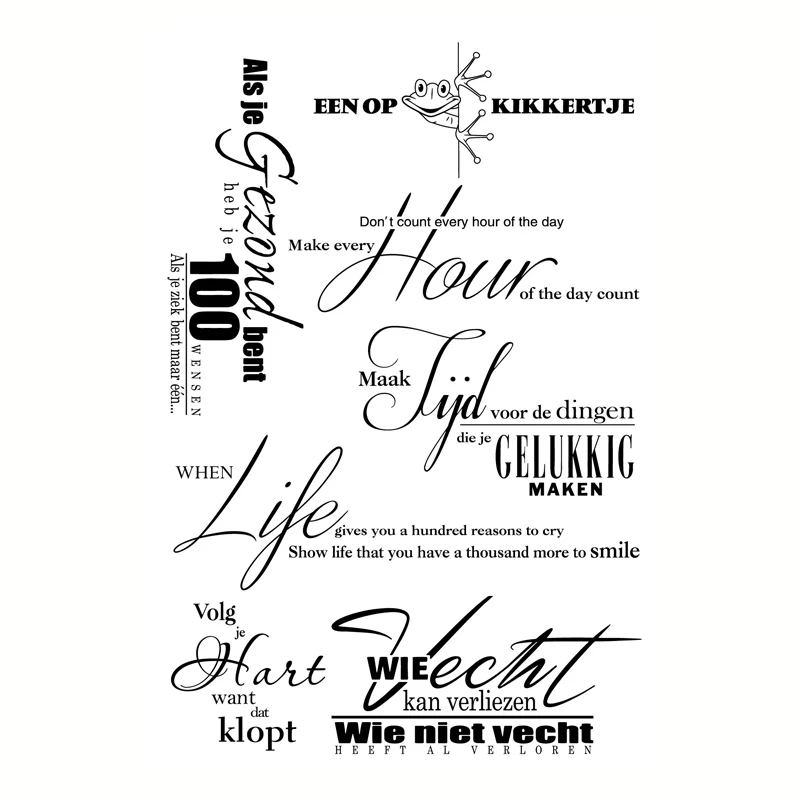 Als je
Gezond bent
heb je
100 WENSEN
Als je ziek bent maar één...
EEN OP KIKKERTJE
Don't count every hour of the day
Make every Hour of the day count
Maak Tijd voor de dingen
die je GELUKKIG
MAKEN
WHEN Life gives you a hundred reasons to cry
Show life that you have a thousand more to smile
Volg
je
Hart
want
dat
klopt
WIE Vecht
kan verliezen
Wie niet vecht
HEEFT AL VERLOREN